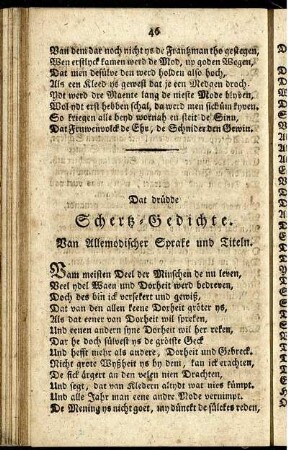 46
Van dem dat noch nicht ys de Frantzman tho gestegen,
Wen erstlyck kamen werd de Mod, up goden Wegen,
Dat men desülve den werd holden also hoch,
Als een Kleed ys gewest dat je een Medgen droch.
Ydt werd dre Maente lang de nieste Mode blyven,
Wol ydt erst hebben schal, da werd men sick üm kyven.
So kriegen alle beyd wornah en steit de Sinn,
Dat Fruwenvolck de Ehr, de Schnider den Gewin.
Dat drüdde
Schertz-Gedichte.
Van Allemodischer Sprake und Titeln.
Vam meisten Deel der Minschen de nu leven,
Veel ydel Waen und Dorheit werd bedreven,
Doch des bin ick versekert und gewiß,
Dat van den allen keene Dorheit gröter ys,
Als dat eener van Dorheit wil spreken,
Und eenen andern syne Dorheit wil her reken,
Dar he doch sülvest ys de grötste Geck
Und hefft mehr als andere, Dorheit und Gebreck.
Nicht grote Wyßheit ys by dem, kan ick erachten,
De sick ärgert an den velen nien Drachten,
Und segt, dat van Kledern altydt wat nies kümpt.
Und alle Jahr man eene andre Mode vernimpt.
De Mening ys nicht goet, my dünckt de sülckes reden,